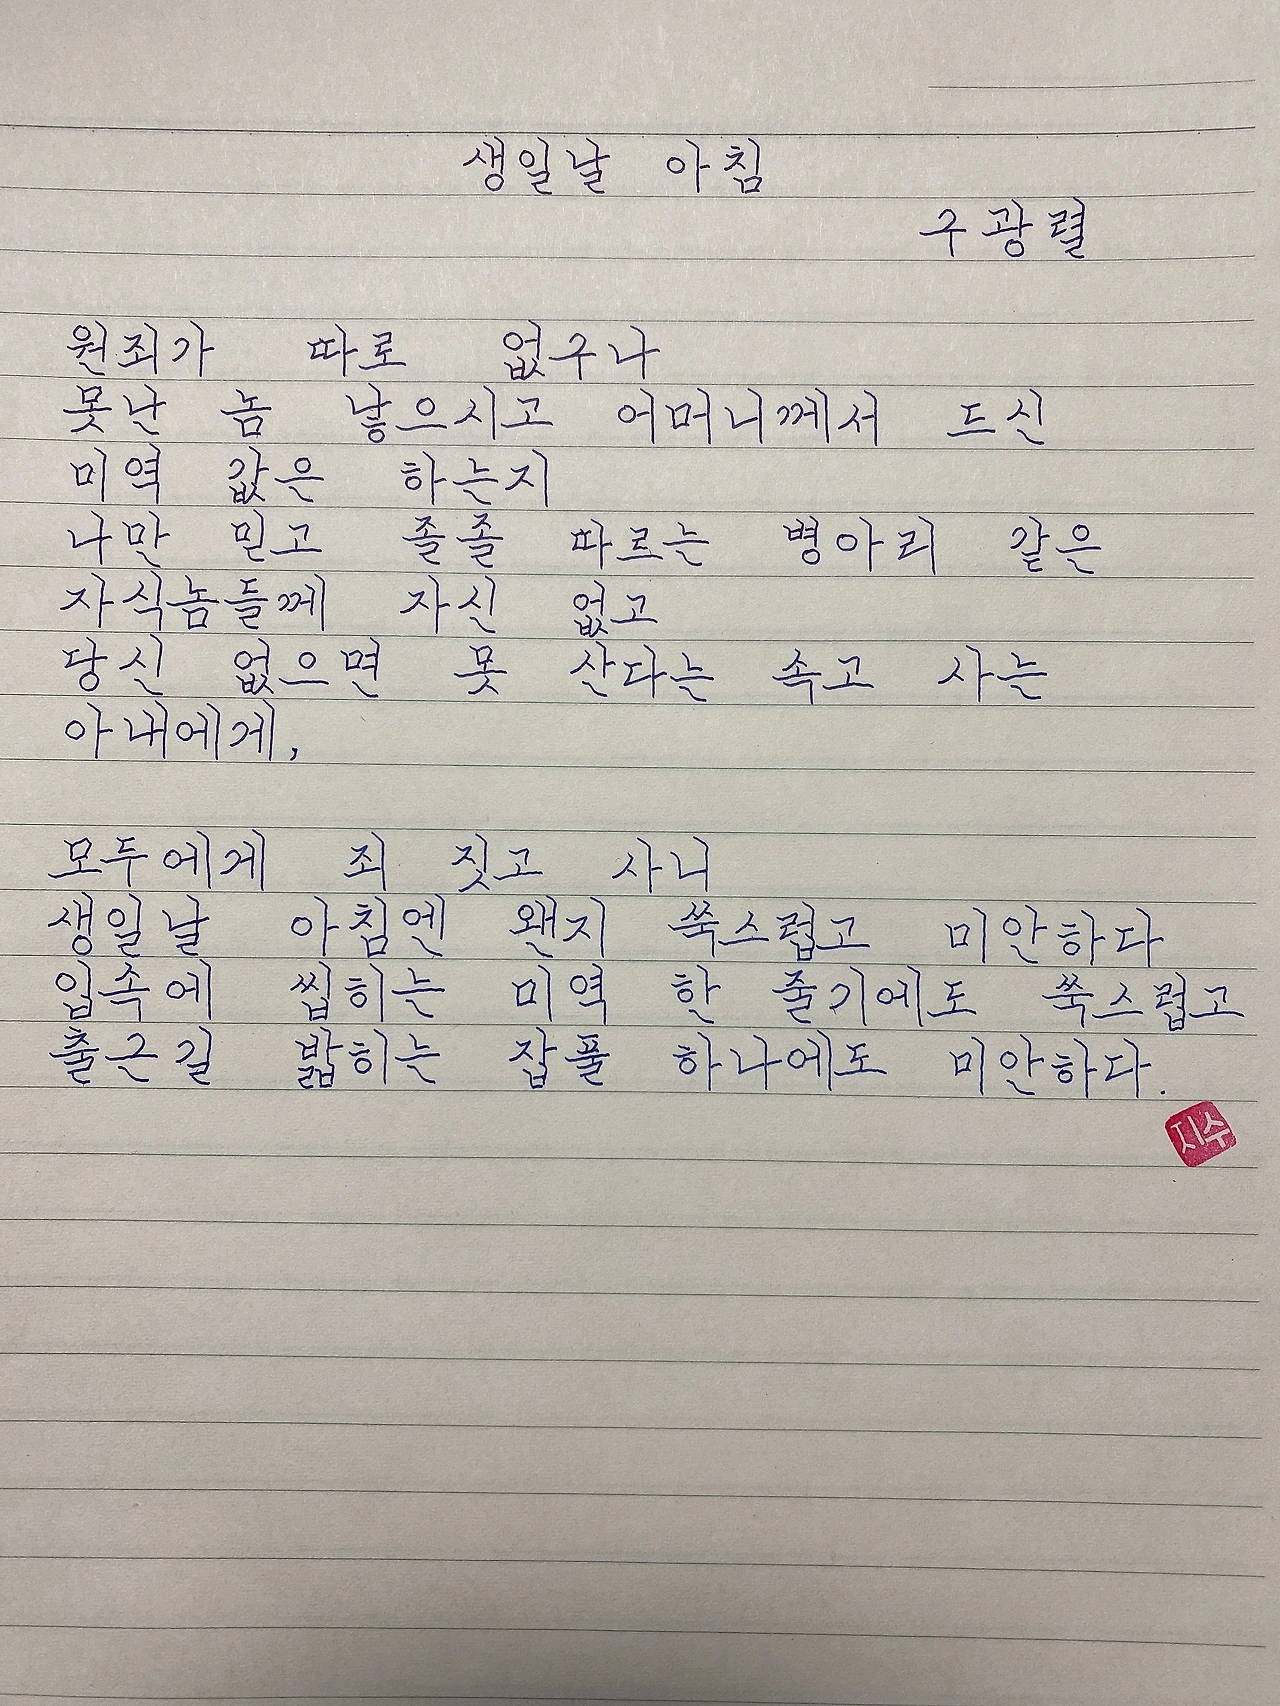 생일날 아침
구광렬
원죄가 따로 없구나
못난 놈 낳으시고 어머니께서 드신
미역 값은 하는지
나만 믿고 졸졸 따르는 병아리 같은
자식놈들께 자신 없고
당신 없으면 못 산다는 속고 사는
아내에게,
모두에게 죄 짓고 사니
생일날 아침엔 왠지 쑥스럽고 미안하다
입속에 씹히는 미역 한 줄기에도 쑥스럽고
출근길 밟히는 잡풀 하나에도 미안하다.
지수